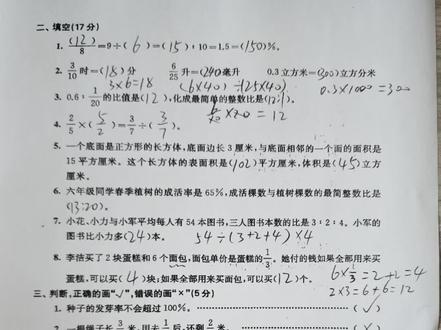 二、填空(17分)
1. (12)/8=9÷(6)=(15):10=1.5=(150)%。
2. 3/10时=(18)分 6/25升=(240)毫升 0.3立方米=(300)立方分米
3×6=18 (6×40)÷(25×40) 0.3×1000=300
3. 0.6:1/20的比值是(12),化成最简单的整数比是(12:1)。
×20=12
4. 2/5×(5/2)=3/7÷(3/7)。
5. 一个底面是正方形的长方体,底面边长3厘米,与底面相邻的一个面的面积是
15平方厘米。这个长方体的表面积是(102)平方厘米,体积是(45)立方
厘米。
6. 六年级同学春季植树的成活率是65%,成活棵数与植树棵数的最简整数比是
(13:20)。
7. 小花、小力与小军平均每人有54本图书,三人图书本数的比是3:2:4。小军的
图书比小力多(24)本。 54÷(3+2+4)×4
8. 李洁买了2块蛋糕和6个面包,面包单价是蛋糕的1/3。她付的钱如果全部用来买
蛋糕,可以买(4)块;如果全部用来买面包,可以买(12)个。 6×1/3=2+2=4
2×3=6+6=12
三、判断,正确的画“√”,错误的画“×”(5分)
1. 种子的发芽率不会超过100%。 (√)
2. 一根绳子长3/米,用去1/后,还剩2/米。